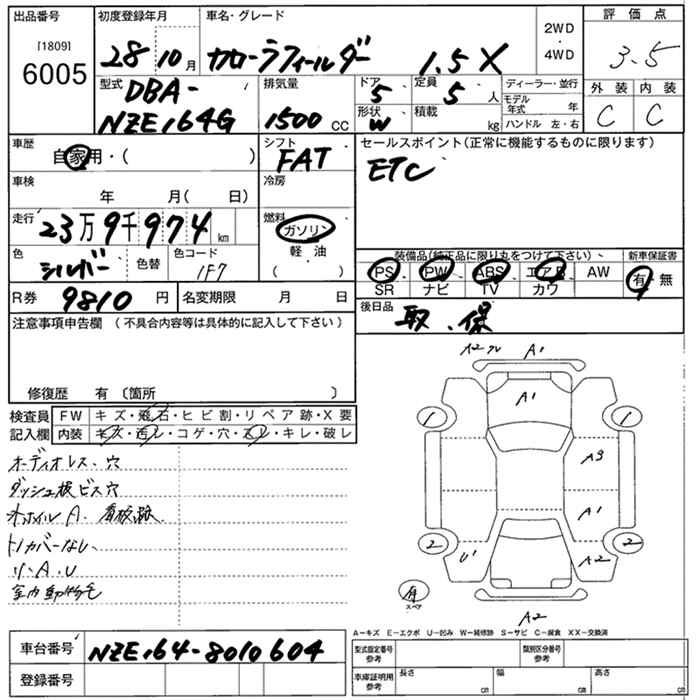 出品番号
[1809]
6005
初度登録年月
28 10月
車名・グレード
カローラフィールダー 1.5X
2WD
・
4WD
評価点
3.5
外装 内装
C C
型式
DBA-
NZE164G
排気量
1500 CC
ドア
5
定員
5人
形状
W
積載
kg
ディーラー・並行
モデル年式 年
ハンドル 左・右
車歴
自家用・( )
シフト
FAT
セールスポイント(正常に機能するものに限ります)
ETC
車検
年 月( 日)
冷房
走行
23万9千974 km
燃料
ガソリン
軽・油
( )
色
シルバー
色替
色コード
1F7
装備品(純正品に限り丸をつけて下さい)
PS PW ABS エアB AW
SR ナビ TV カワ
新車保証書
有・無
R券 9810 円
名変期限 月 日
後日品
取、保
注意事項申告欄 (不具合内容等は具体的に記入して下さい)
修復歴 有〔箇所 〕
検査員
記入欄
FW キズ・飛石・ヒビ割・リペア跡・X要
内装 キズ・汚レ・コゲ・穴・スレ・キレ・破レ
オーディオレス、穴
ダッシュ板ビス穴
ホイルA、看板跡
トノカバーなし
リ、A、U
室内動物毛
A2 フレ A1
A1
1 1
A3
A1
2 2
U1 A2
有
スペア
A2
A-キズ E-エクボ U-凹み W-補修跡 S-サビ C-腐食 XX-交換済
車台番号 NZE164-8010604
登録番号
型式指定番号
参考
類別区分番号
参考
車庫証明用
参考
長さ cm
幅 cm
高さ cm